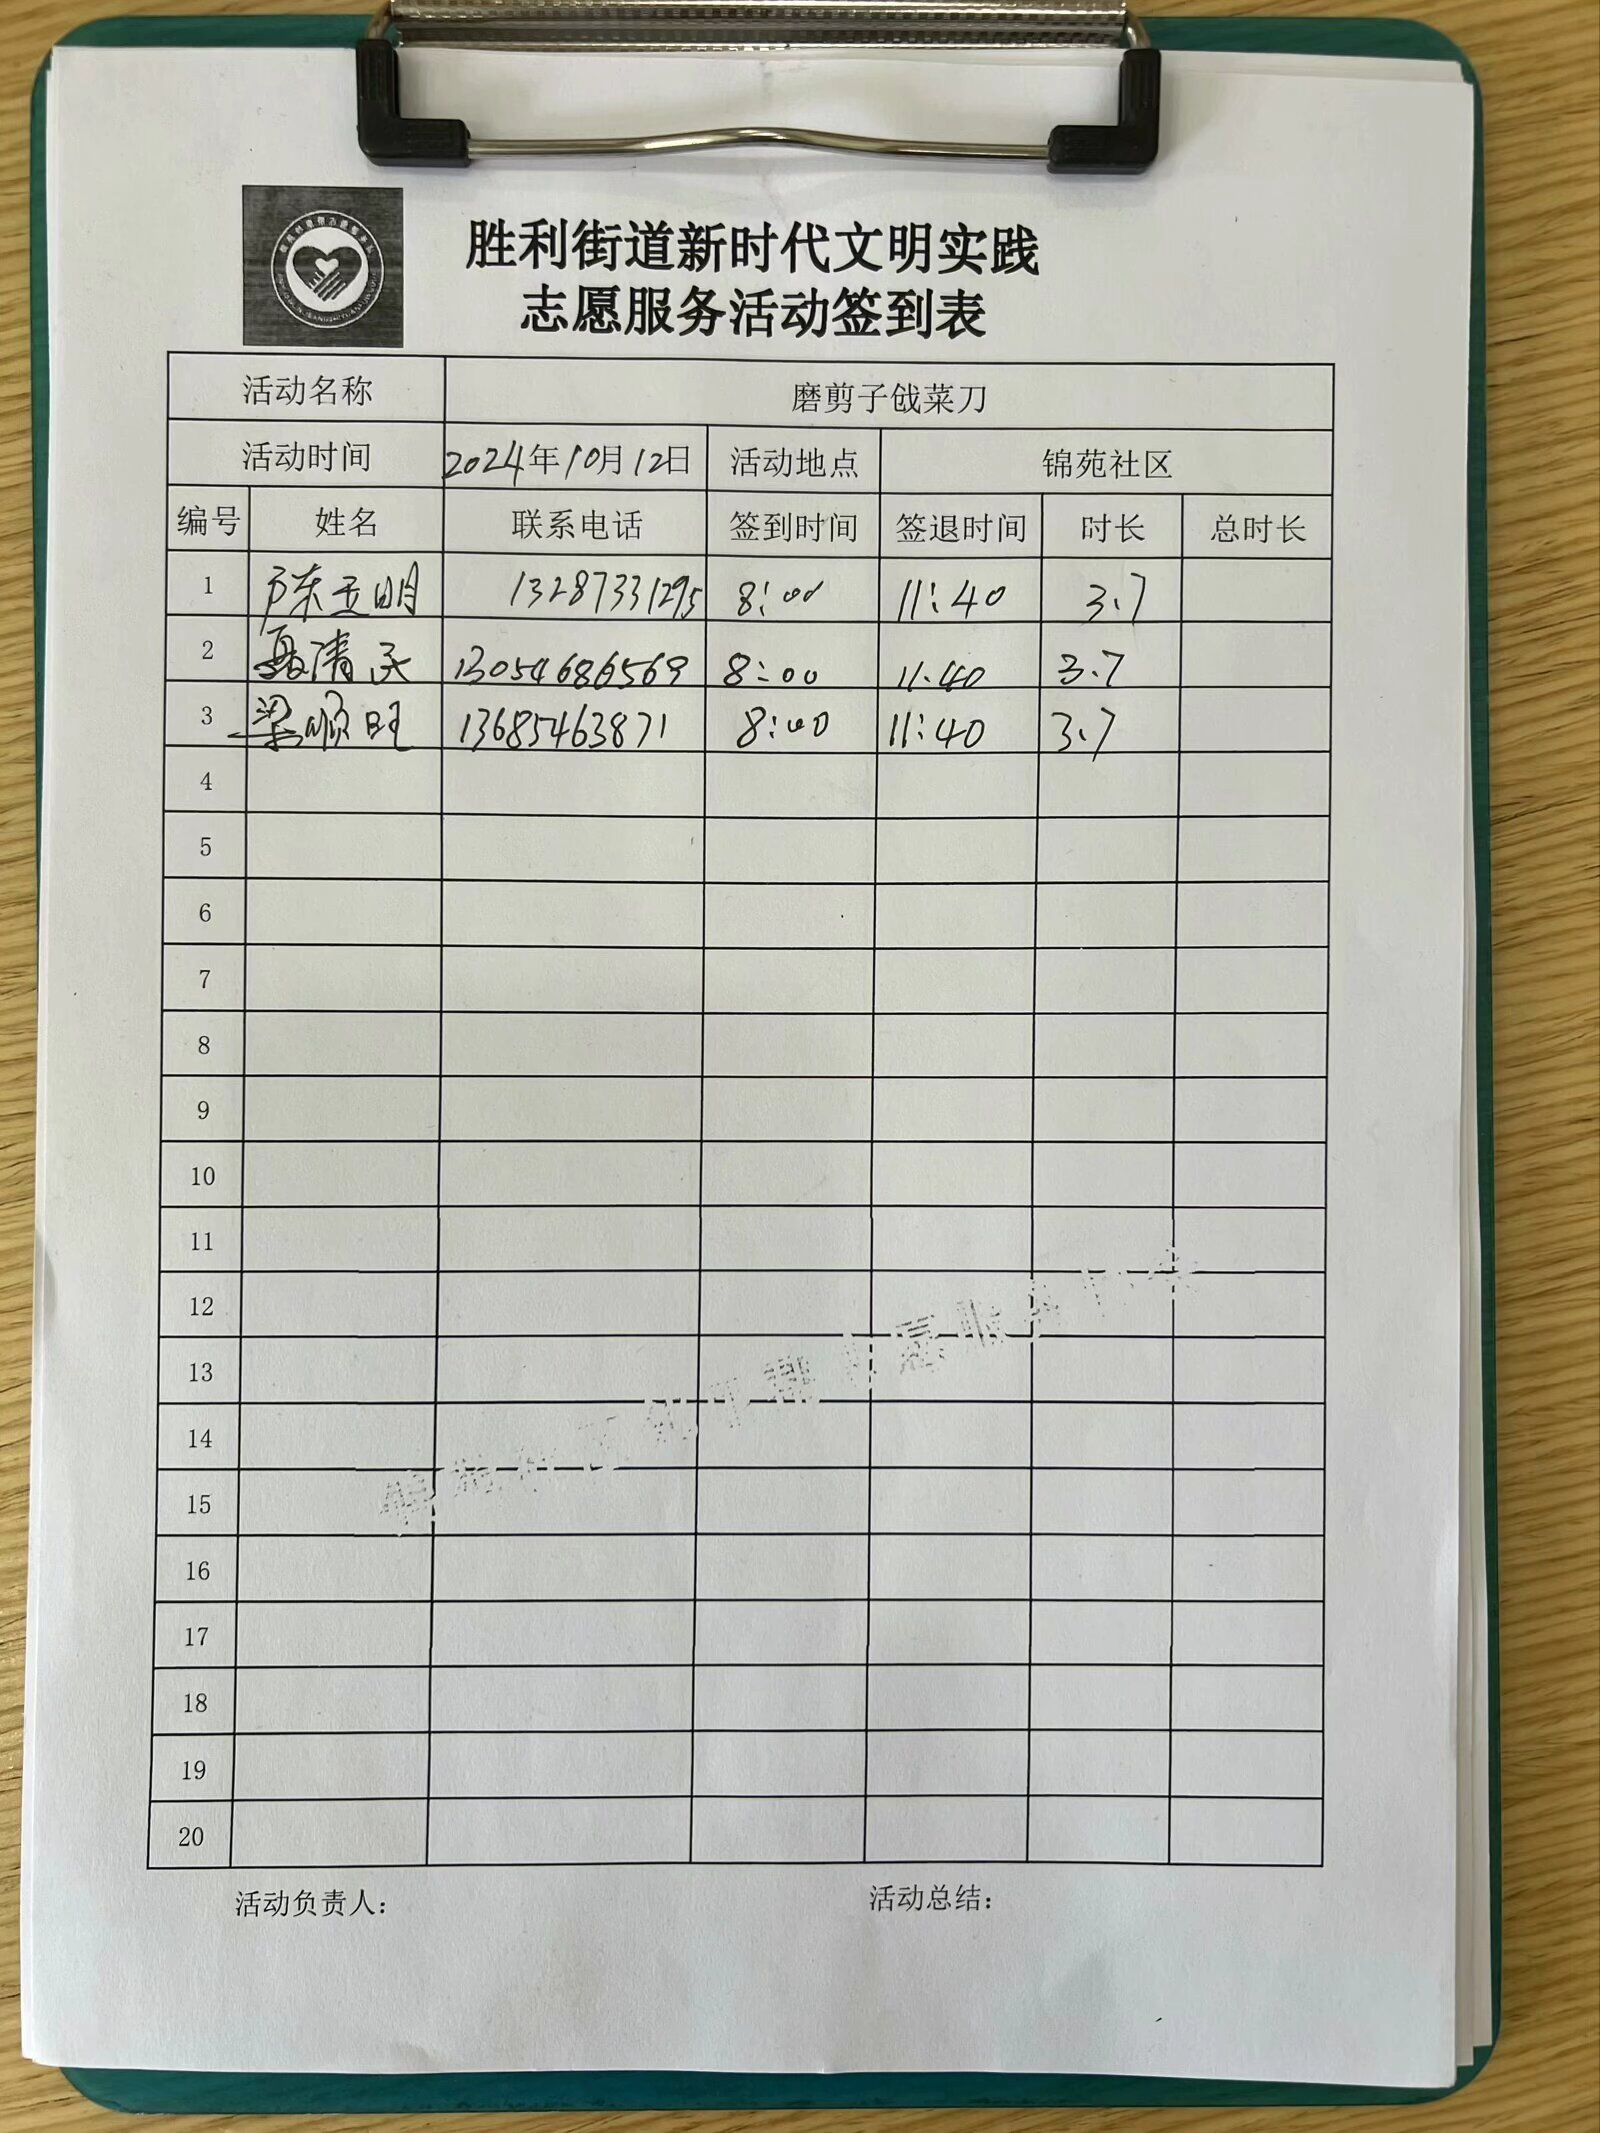 胜利街道新时代文明实践
志愿服务活动签到表
活动名称 磨剪子戗菜刀
活动时间 2024年10月12日 活动地点 锦苑社区
编号 姓名 联系电话 签到时间 签退时间 时长 总时长
1 陈玉明 13287331295 8:00 11:40 3.7
2 清 13054686569 8:00 11:40 3.7
3 梁顺旺 13685463871 8:00 11:40 3.7
4
5
6
7
8
9
10
11
12
13
14
15
16
17
18
19
20
活动负责人： 活动总结：